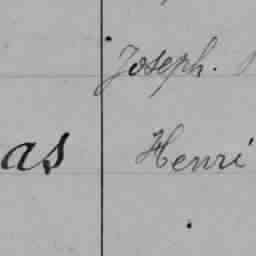 Joseph.
as Henri